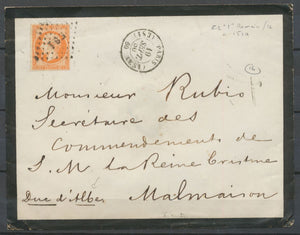 PARIS
(EST)
Monsieur Rubio
Secrétaire des
Commendements de
S. M. la Reine Cristine
Duc d'Albe
Malmaison